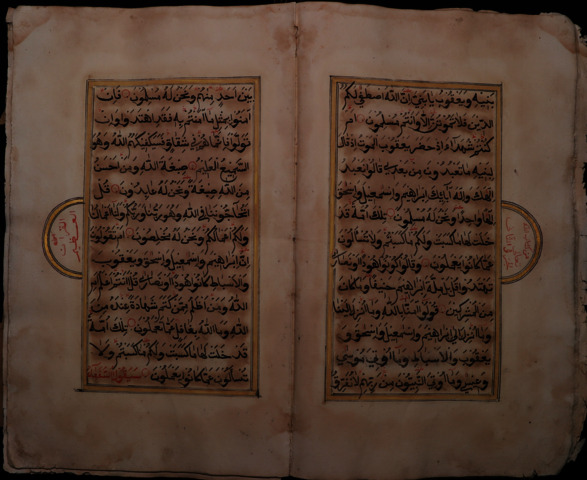 بنيه ويعقوب يا بني ان الله اصطفى لكم
الدين فلا تموتن الا وانتم مسلمون ام
كنتم شهداء اذ حضر يعقوب الموت اذ قال
لبنيه ما تعبدون من بعدي قالوا نعبد
الهك واله آبائك ابراهيم واسمعيل واسحق
الها واحدا ونحن له مسلمون تلك امة قد
خلت لها ما كسبت ولكم ما كسبتم ولا تسألون
عما كانوا يعملون وقالوا كونوا هودا او نصارى
تهتدوا قل بل ملة ابراهيم حنيفا وما كان
من المشركين قولوا آمنا بالله وما انزل الينا
وما انزل الى ابراهيم واسمعيل واسحق و
يعقوب والاسباط وما اوتي موسى
وعيسى وما اوتي النبيون من ربهم لا نفرق
بين احد منهم ونحن له مسلمون فان
امنوا بمثل ما امنتم به فقد اهتدوا وان
تولوا فانما هم في شقاق فسيكفيكهم الله وهو
السميع العليم صبغة الله ومن احسن
من الله صبغة ونحن له عابدون قل
اتحاجوننا في الله وهو ربنا وربكم ولنا اعمالنا
ولكم اعمالكم ونحن له مخلصون ام تقولون
ان ابراهيم واسمعيل واسحق ويعقوب
والاسباط كانوا هودا او نصارى قل ءانتم اعلم ام
الله ومن اظلم ممن كتم شهادة عنده من
الله وما الله بغافل عما تعملون تلك امة
قد خلت لها ما كسبت ولكم ما كسبتم ولا
تسألون عما كانوا يعملون